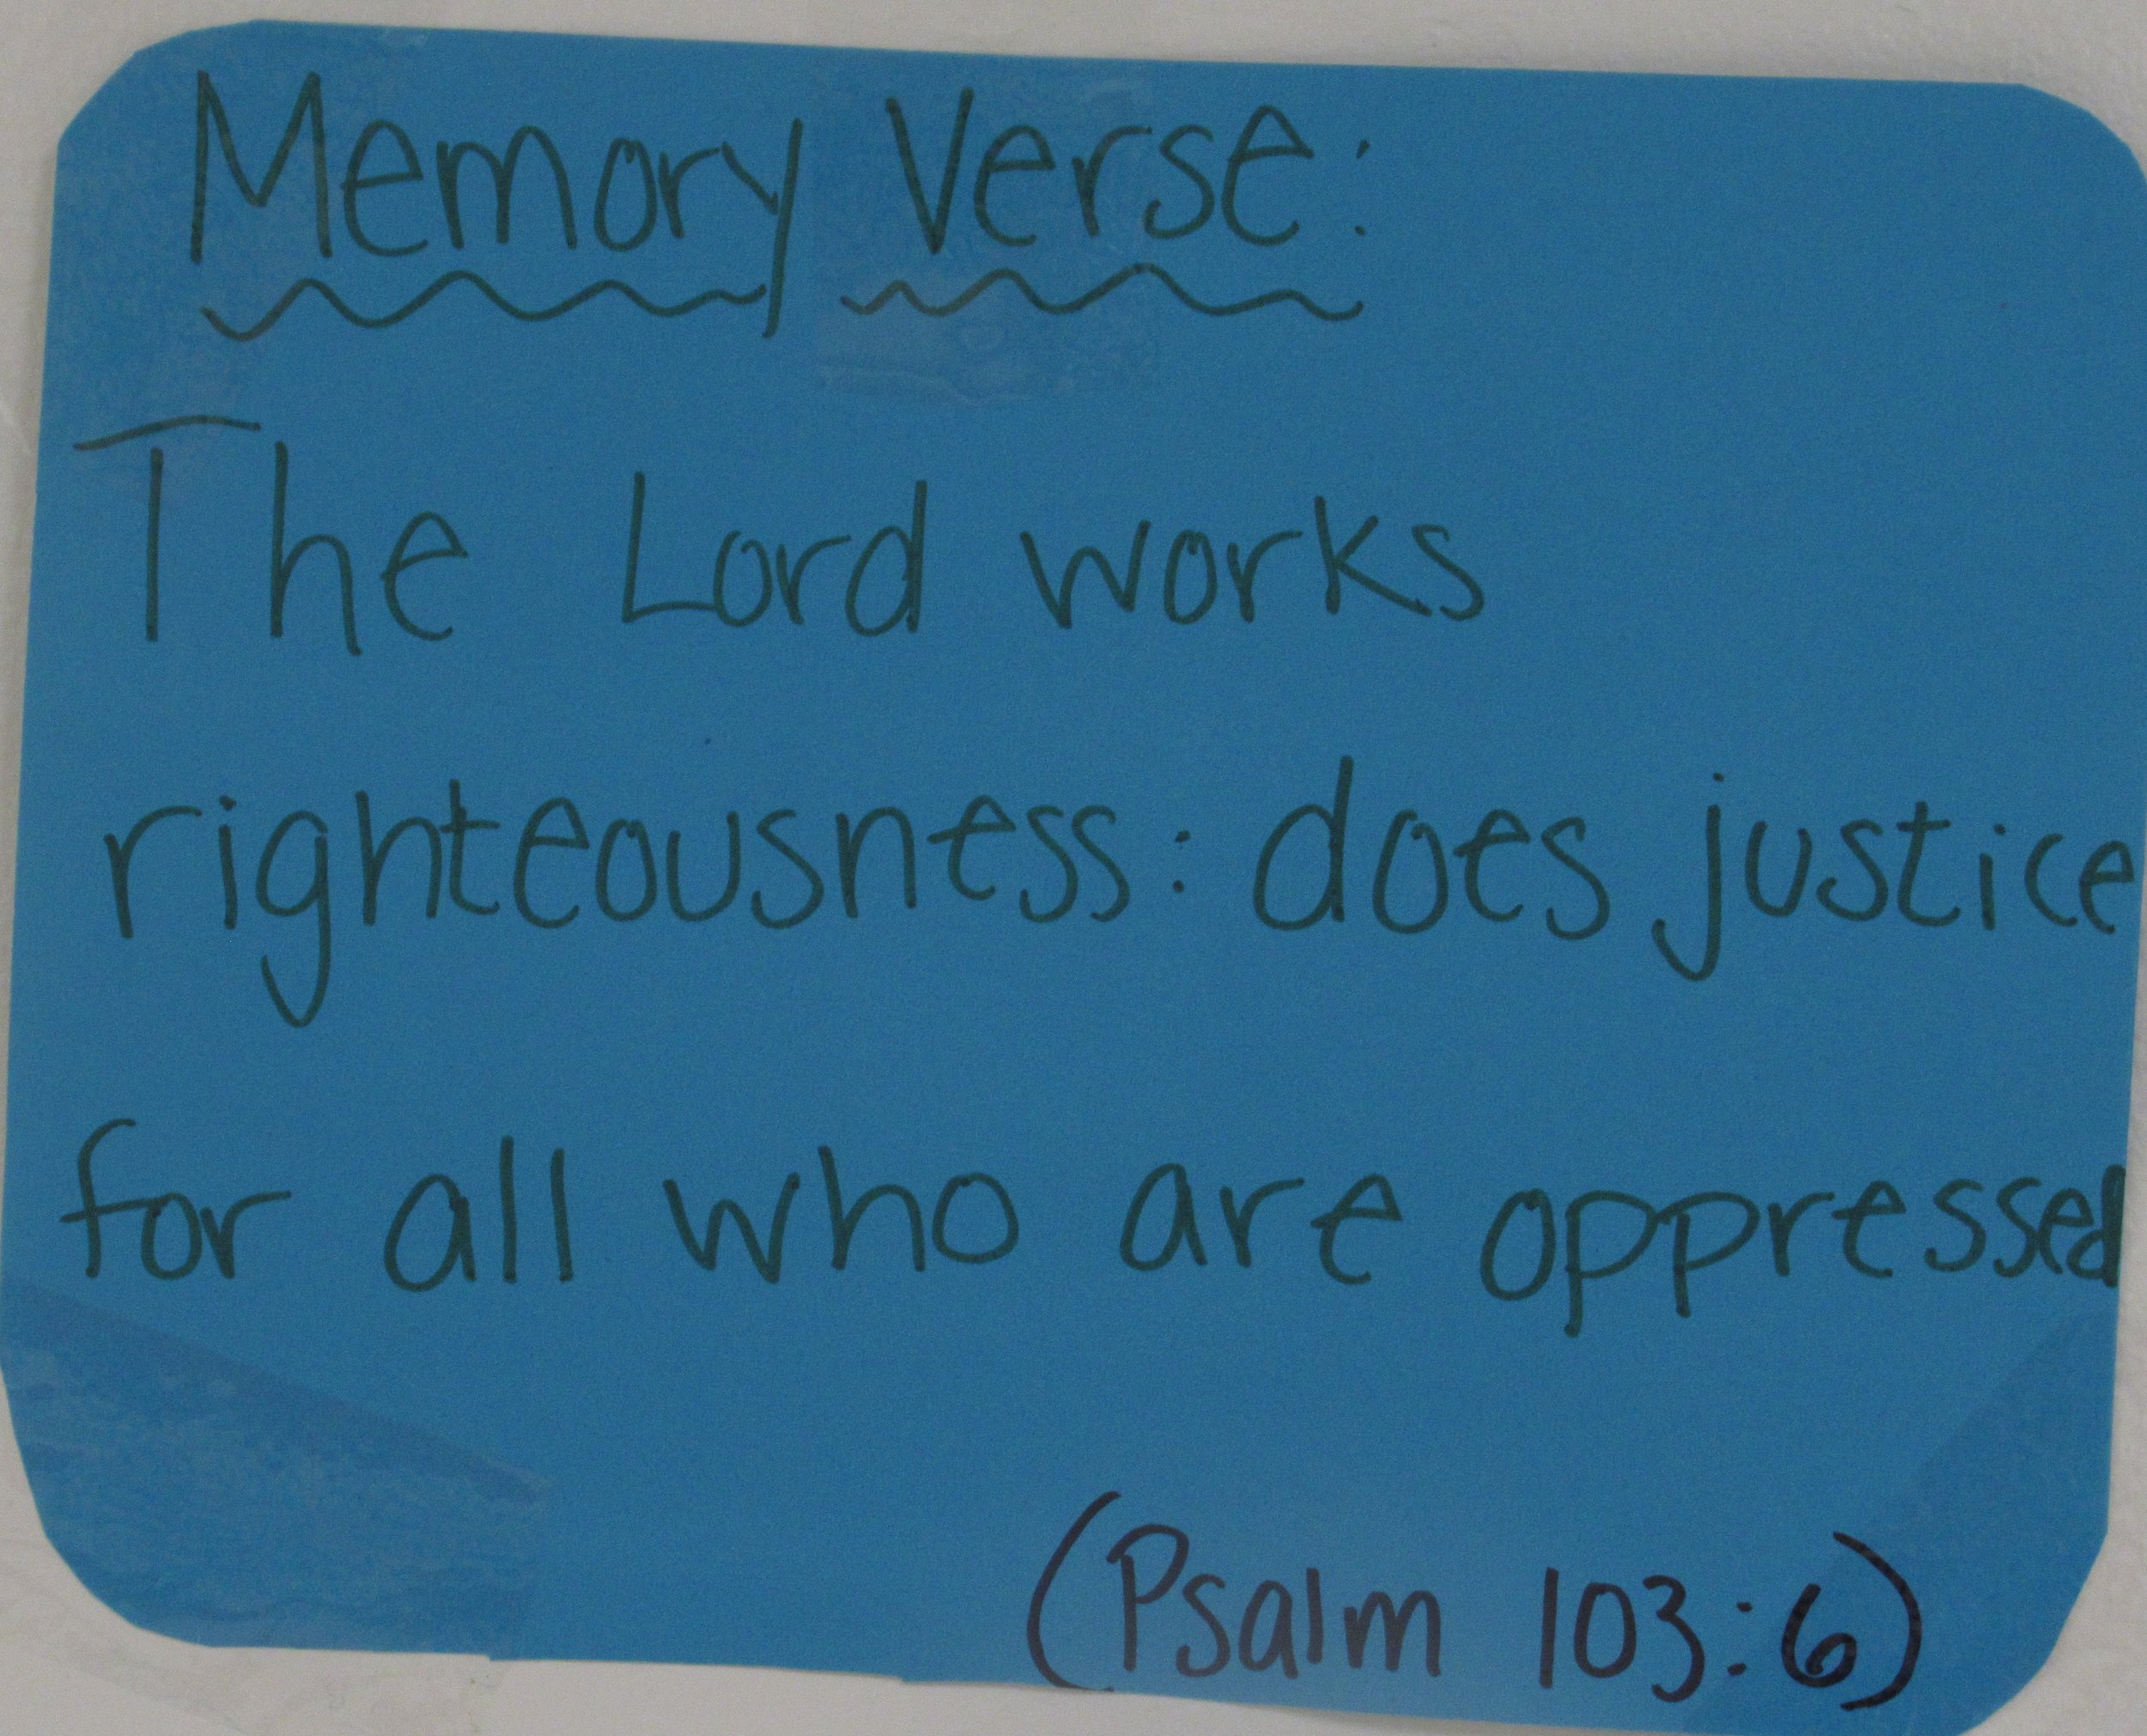 Memory Verse:
The Lord works
righteousness: does justice
for all who are oppressed
(Psalm 103:6)